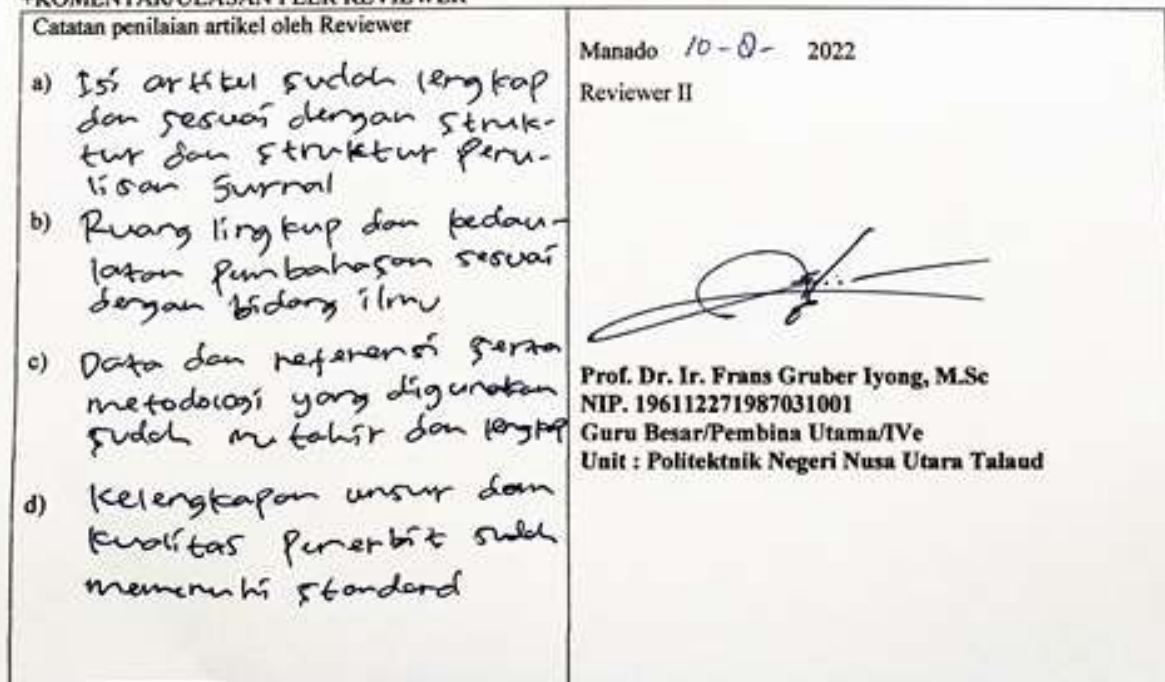 +KOMENTAR/ULASAN PEER REVIEWER
Catatan penilaian artikel oleh Reviewer
a) Isi artikel sudah lengkap
dan sesuai dengan struk-
tur dan struktur penu-
lisan Jurnal
b) Ruang lingkup dan kedau-
latan pembahasan sesuai
dengan bidang ilmu
c) Data dan referensi serta
metodologi yang digunakan
sudah mutahir dan lengkap
d) Kelengkapan unsur dan
kualitas penerbit sudah
memenuhi standard
Manado 10 - 2022
Reviewer II
Prof. Dr. Ir. Frans Gruber Iyong, M.Sc
NIP. 196112271987031001
Guru Besar/Pembina Utama/IVe
Unit : Politektnik Negeri Nusa Utara Talaud